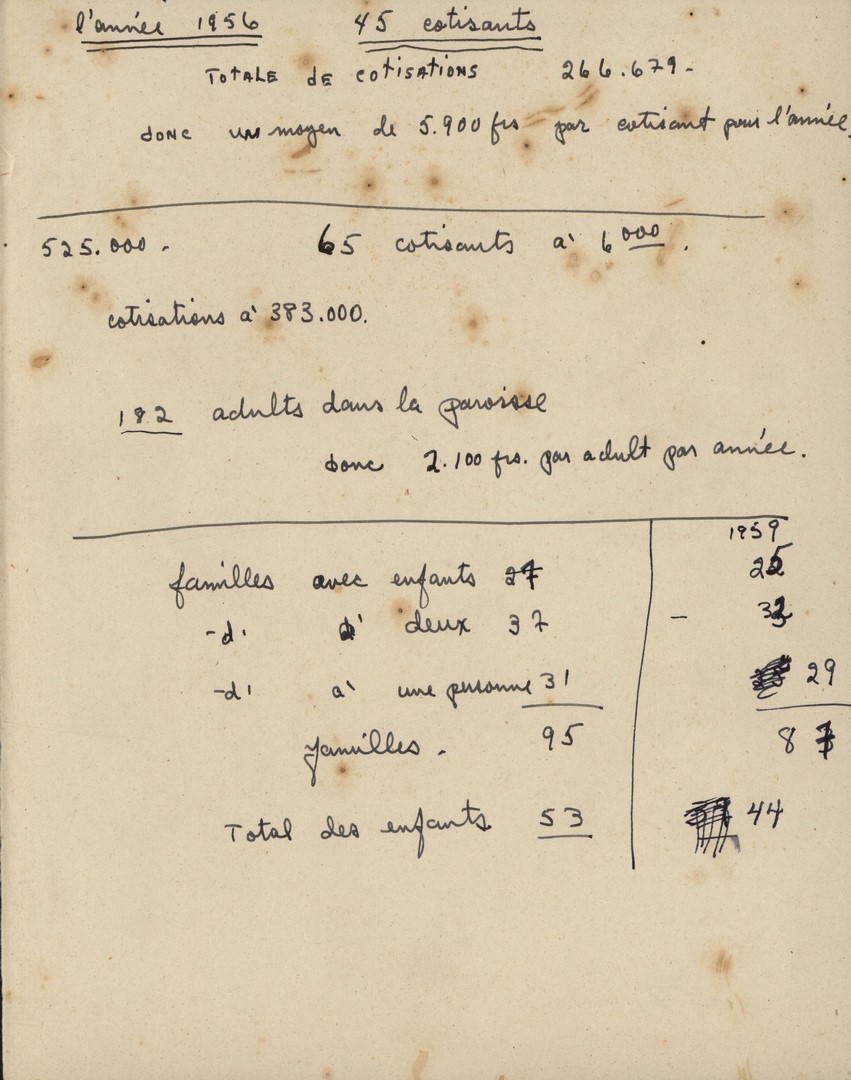 l'année 1956 45 cotisants
TOTALE de COTISATIONS 266.679-
donc un moyen de 5.900 frs par cotisant pour l'année.
525.000 - 65 cotisants à 6000.
cotisations à 383.000.
182 adults dans la paroisse
donc 2.100 frs. par adult par année.
1959
familles avec enfants 27 25
-d. à deux 37 - 32
-d' à une personne 31 29
familles. 95 8
Total des enfants 53 44